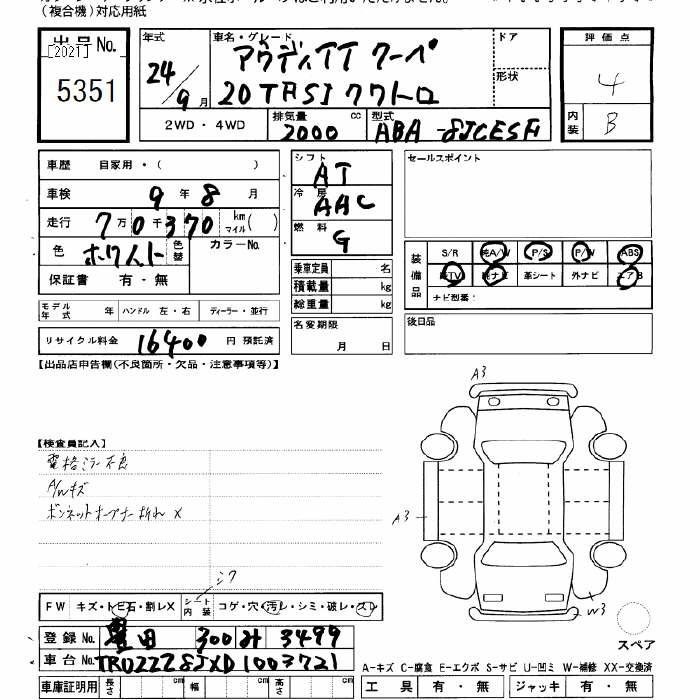 (複合機)対応用紙
出品No.
[2021]
5351
年式
24/9月
車名・グレード
アウディTT クーペ
20TFSIクワトロ
ドア
形状
2WD・4WD
排気量
2000
cc
型式
ABA-8JCESF
評価点
4
内装
B
車歴 自家用・( )
車検 9年8月
走行 7万0千370 km マイル( )
色 ホワイト 色替 カラーNo.
保証書 有・無
シフト
AT
冷房
AAC
燃料
G
乗車定員 名
積載量 kg
総重量 kg
セールスポイント
装備品
S/R 純A/W P/S P/W ABS
純TV 純ナビ 革シート 外ナビ エアB
ナビ型番:
モデル年式 年 ハンドル 左・右 ディーラー・並行
リサイクル料金 16400 円 預託済
名変期限
月 日
後日品
【出品店申告欄(不良箇所・欠品・注意事項等)】
A3
【検査員記入】
電格ミラー不良
A/Wキズ
ボンネットオープナー折れ X
A3
シワ
W3
FW キズ・トビ石・割レX シート内装 コゲ・穴・汚レ・シミ・破レ・スレ
スペア
登録No. 豊田 300 み 3499
車台No. TRUZZZ8JXD1003721
A-キズ C-腐食 E-エクボ S-サビ U-凹ミ W-補修 XX-交換済
車庫証明用 長さ cm 幅 cm 高さ cm
工具 有・無 ジャッキ 有・無